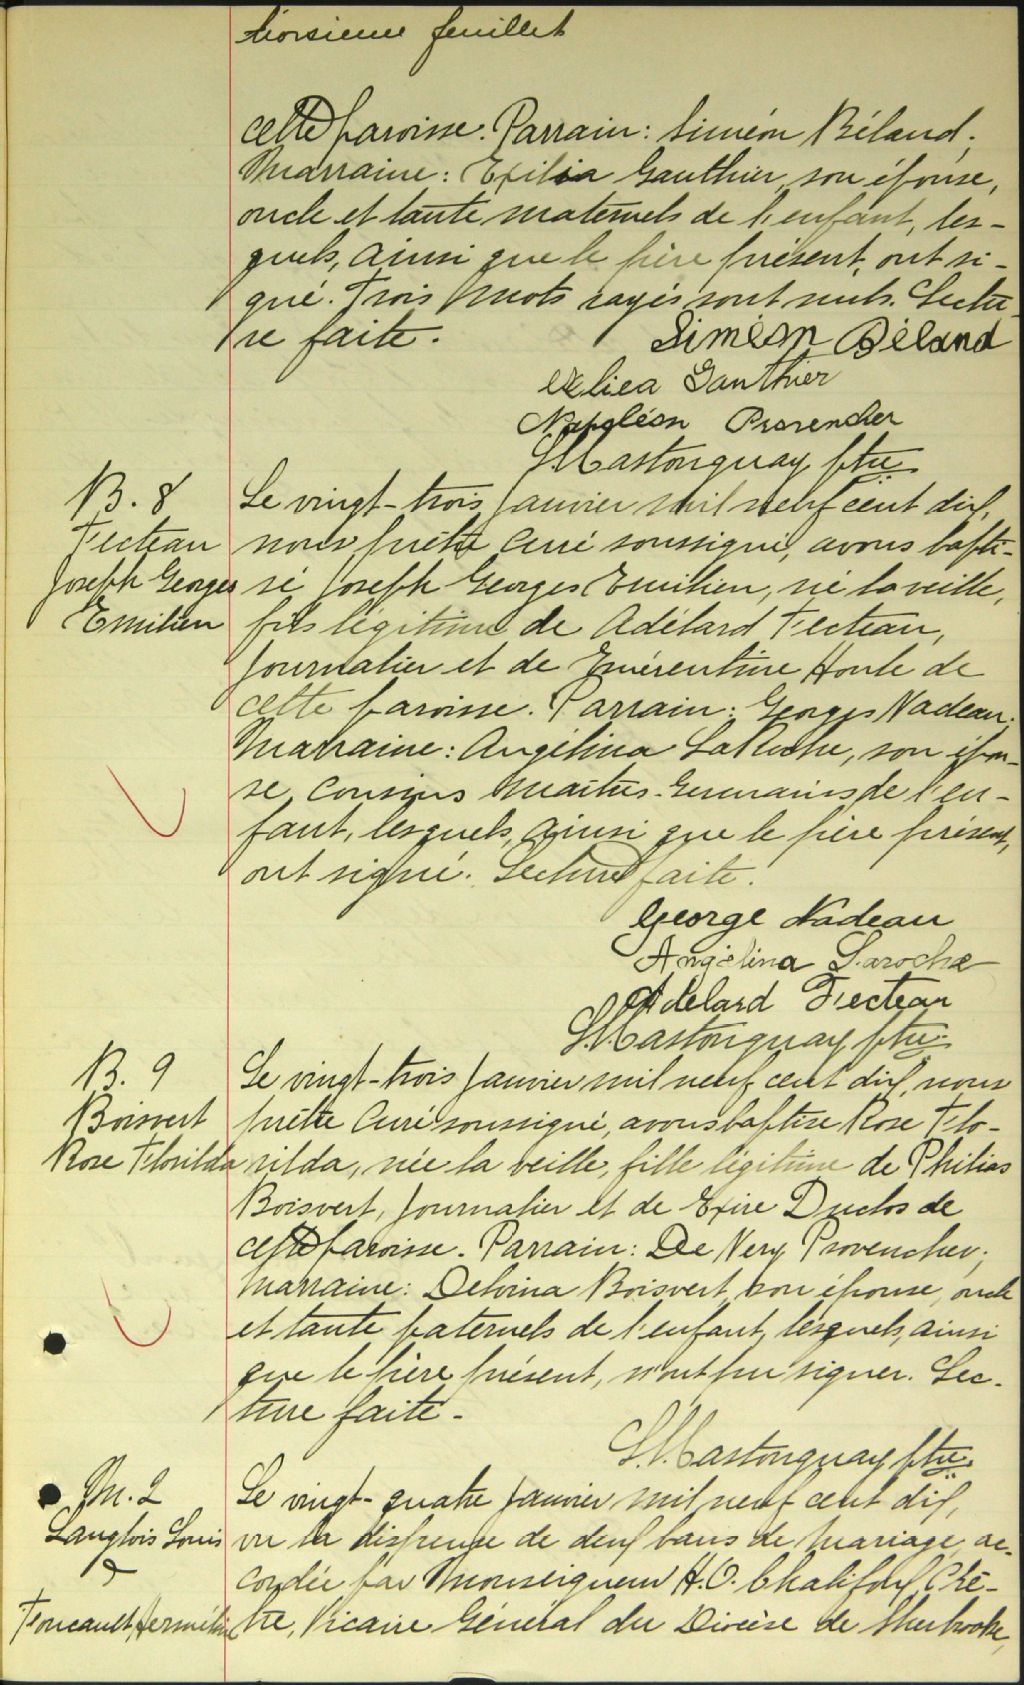 troisième feuillet
cette paroisse. Parrain: Siméon Béland;
Marraine: Exilia Gauthier, son épouse,
oncle et tante maternels de l'enfant, les-
quels, ainsi que le père présent, ont si-
gné. Trois mots rayés sont nuls. Lectu-
re faite.
Siméon Béland
Exliea Gauthier
Napoléon Provencher
Castonguay ptre
B. 8
Fecteau
Joseph Georges
Emilien
Le vingt-trois Janvier mil neuf cent dix,
nous prêtre curé soussigné, avons bapti-
sé Joseph Georges Emilien, né la veille,
fils légitime de Adélard Fecteau,
Journalier et de Emérentine Houle de
cette paroisse. Parrain: Georges Nadeau;
Marraine: Angélina LaRoche, son épou-
se, cousins Germains de l'en-
fant, lesquels, ainsi que le père présent,
ont signé. Lecture faite.
George Nadeau
Angélina Laroche
Adelard Fecteau
Castonguay ptre
B. 9
Boisvert
Rose Florilda
Le vingt-trois Janvier mil neuf cent dix, nous
prêtre curé soussigné, avons baptisé Rose Flo-
rilda, née la veille, fille légitime de Philias
Boisvert, Journalier et de Exire Duclos de
cette paroisse. Parrain: De Nery Provencher;
marraine: Delvina Boisvert, son épouse, oncle
et tante paternels de l'enfant, lesquels, ainsi
que le père présent, n'ont pu signer. Lec-
ture faite.
Castonguay ptre
M. 2
Langlois Louis
&
Foucault Herméline
Le vingt-quatre Janvier mil neuf cent dix,
vu la dispense de deux bans de mariage, ac-
cordée par Monseigneur H.O. Chalifoux, Prê-
tre, Vicaire Général du Diocèse de Sherbrooke,